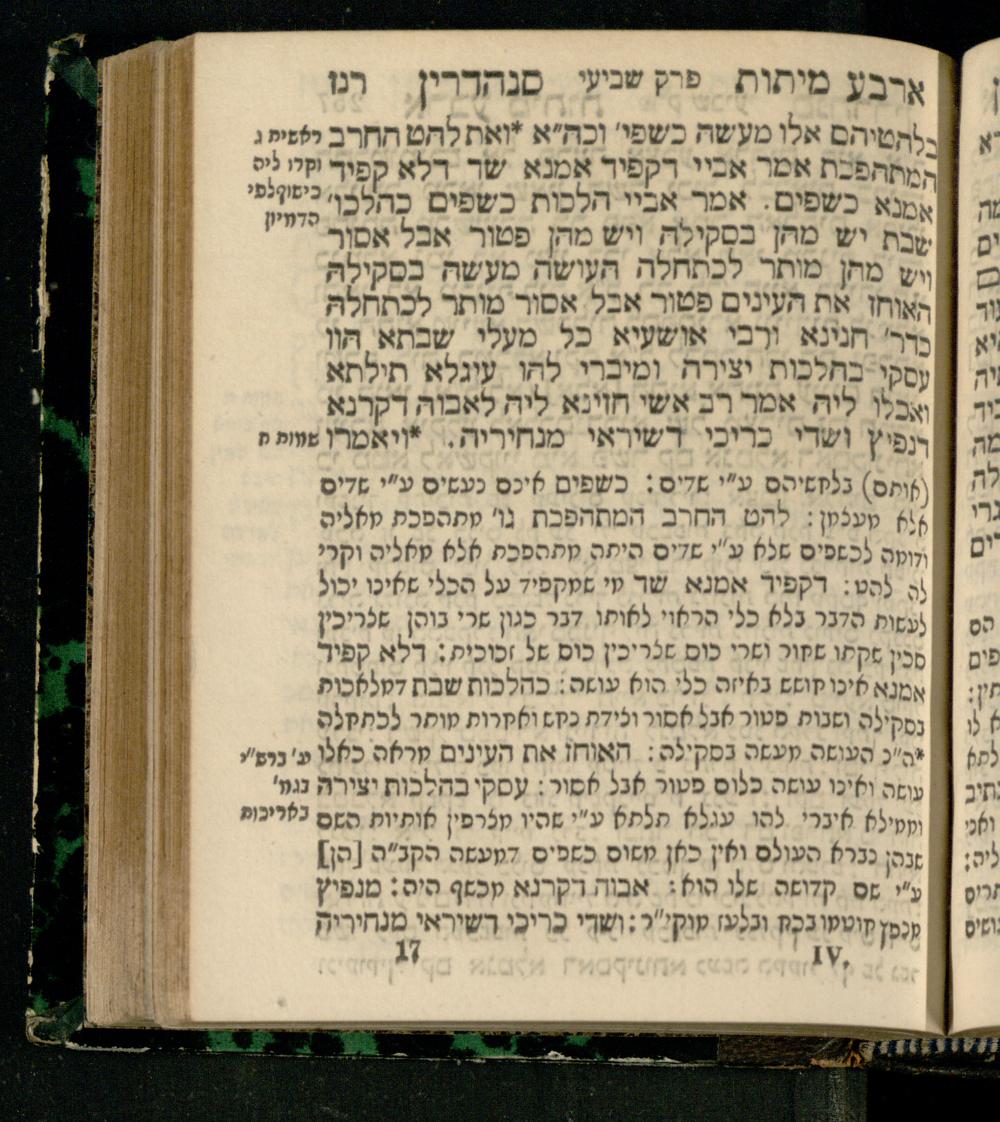 ארבע מיתות פרק שביעי סנהדרין רנו
בלהטיהם אלו מעשה כשפי' וכה"א *ואת להט החרב
המתהפכת אמר אביי דקפיד אמנא שד דלא קפיד
אמנא כשפים. אמר אביי הלכות כשפים כהלכו'
שבת יש מהן בסקילה ויש מהן פטור אבל אסור
ויש מהן מותר לכתחלה העושה מעשה בסקילה
האוחז את העינים פטור אבל אסור מותר לכתחלה
כדר' חנינא ורבי אושעיא כל מעלי שבתא הוו
עסקי בהלכות יצירה ומיברי להו עיגלא תילתא
ואכלו ליה אמר רב אשי חזינא ליה לאבוה דקרנא
דנפיץ ושדי כריכי דשיראי מנחיריה. *ויאמרו
ראשית ג
וקרו ליה
כישוף לפי
הדמיון
שמות ח
(אותם) בלחשיהם ע"י שדים: כשפים אינם נעשים ע"י שדים
אלא מעצמן: להט החרב המתהפכת גו' מתהפכת מאליה
ודומה לכשפים שלא ע"י שדים היתה מתהפכת אלא מאליה וקרי
לה להט: דקפיד אמנא שד מי שמקפיד על הכלי שאינו יכול
לעשות הדבר בלא כלי הראוי לאותו דבר כגון שרי בוהן שצריכין
סכין שקתו שחור ושרי כוס שצריכין כוס של זכוכית: דלא קפיד
אמנא אינו חושש באיזה כלי הוא עושה: כהלכות שבת דמלאכות
בסקילה ושבות פטור אבל אסור וצידת נחש ואחרות מותר לכתחלה
*ה"נ העושה מעשה בסקילה: האוחז את העינים מראה כאלו
עושה ואינו עושה כלום פטור אבל אסור: עסקי בהלכות יצירה
וממילא איברי להו עגלא תלתא ע"י שהיו מצרפין אותיות השם
שבהן נברא העולם ואין כאן משום כשפים דמעשה הקב"ה [הן]
ע"י שם קדושה שלו הוא: אבוה דקרנא מכשף היה: מנפיץ
מנפץ חוטמו בכח ובלעז מוקי"ר: ושדי כריכי דשיראי מנחיריה
ע' ברש"י
בגמ'
באריכות
IV. 17